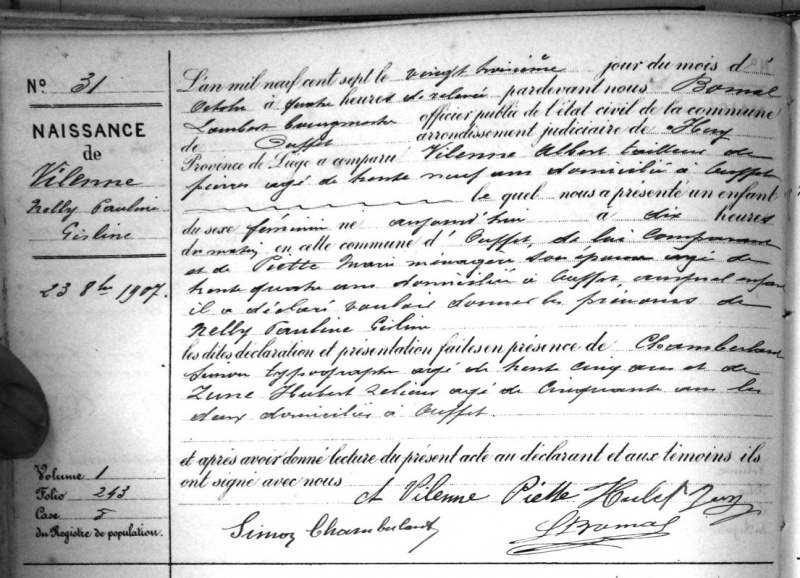 No 31
NAISSANCE
de
Vilenne
Nelly Pauline
Gisline
23 8bre 1907.
Volume 1
Folio 243
Case
du Registre de population.
L'an mil neuf cent sept le vingt troisième jour du mois d'
Octobre à quatre heures de relevée pardevant nous Bomal
Lambert Bourgmestre officier public de l'état civil de la commune
de Ouffet arrondissement judiciaire de Huy
Province de Liège a comparu Vilenne Albert tailleur de
pierres agé de trente neuf ans domicilié à Ouffet
le quel nous a présenté un enfant
du sexe féminin né aujourd'hui à dix heures
du matin en cette commune d' Ouffet, de lui comparant
et de Piette Marie ménagère son épouse agé de
trente quatre ans domiciliée à Ouffet auquel enfant
il a déclaré vouloir donner les prénoms de
Nelly Pauline Gisline
les dites déclaration et présentation faites en présence de Chamberland
Simon typographe agé de trente cinq ans et de
Hubert relieur agé de cinquante ans les
deux domiciliés à Ouffet.
et après avoir donné lecture du présent acte au déclarant et aux témoins ils
ont signé avec nous
A Vilenne Piette Hubert
Simon Chamberland LBomal